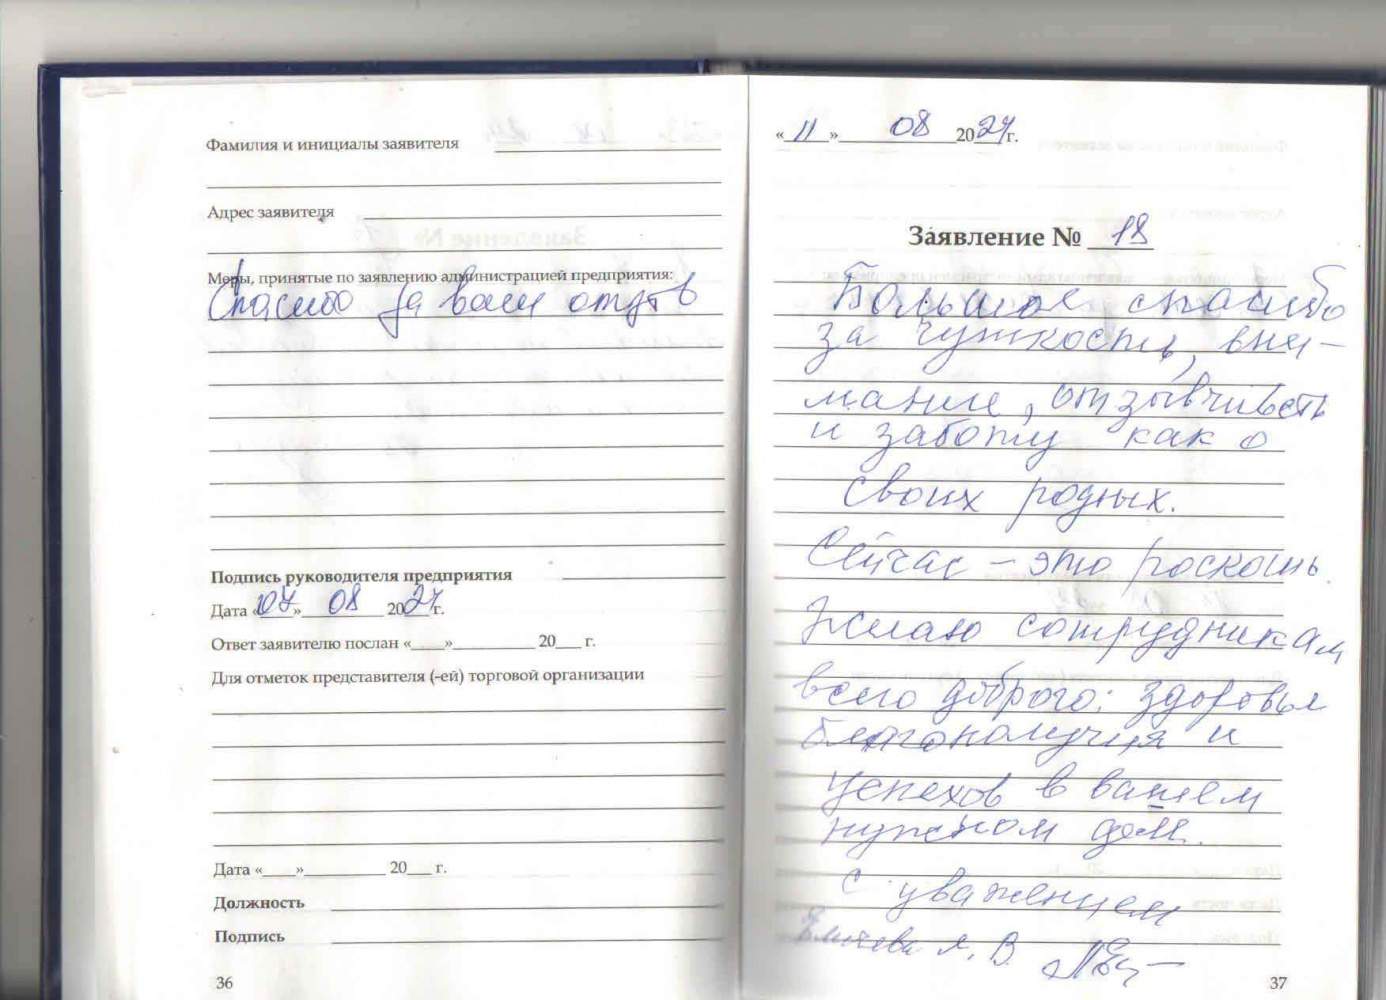 Фамилия и инициалы заявителя
Адрес заявителя
Меры, принятые по заявлению администрацией предприятия:
Спасибо за ваш отзыв
Подпись руководителя предприятия
Дата «07» 08 2024 г.
Ответ заявителю послан «____»__________ 20___ г.
Для отметок представителя (-ей) торговой организации
Дата «____»__________ 20___ г.
Должность
Подпись
36
«11» 08 2024 г.
Заявление № 18
Большое спасибо
за чуткость, вни-
мание, отзывчивость
и заботу как о
своих родных.
Сейчас – это роскошь.
Желаю сотрудникам
всего доброго: здоровья
благополучия и
успехов в вашем
нужном деле.
С уважением
Л. В.
37